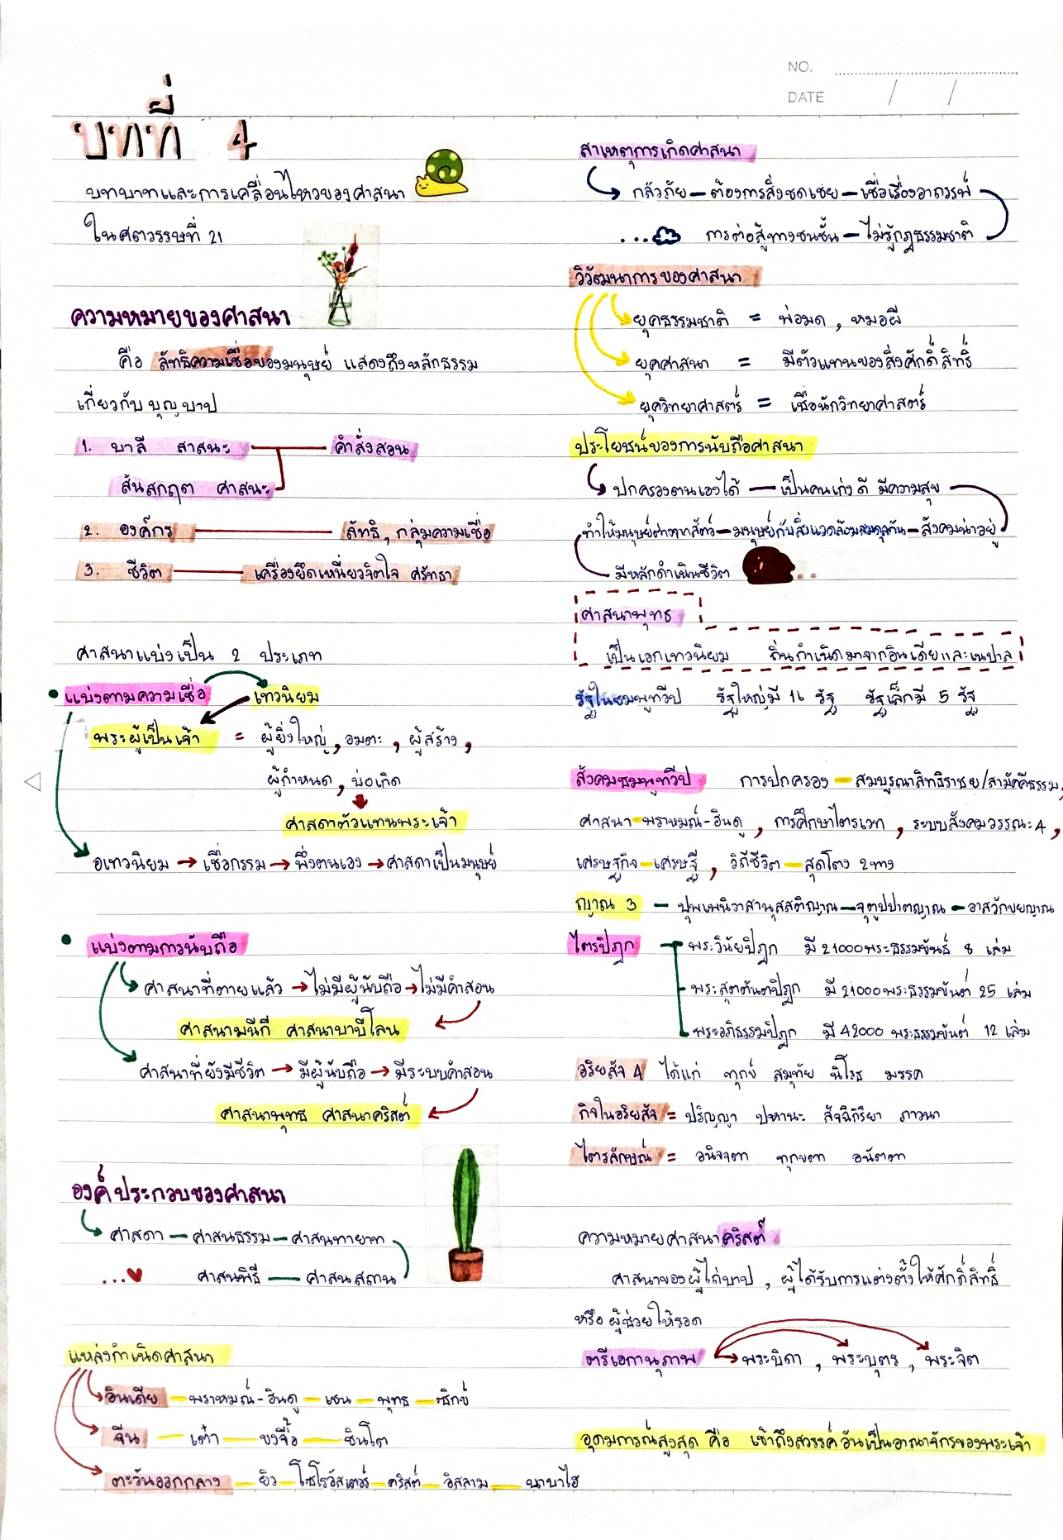 NO.
DATE / /
บทที่ 4
บทบาทและการเคลื่อนไหวของศาสนา
ในศตวรรษที่ 21
ความหมายของศาสนา
คือ ลัทธิความเชื่อของมนุษย์ แสดงถึงหลักธรรม
เกี่ยวกับ บุญ บาป
1. บาลี สาสนะ คำสั่งสอน
สันสกฤต ศาสนะ
2. องค์กร ลัทธิ, กลุ่มความเชื่อ
3. ชีวิต เครื่องยึดเหนี่ยวจิตใจ ศรัทธา
ศาสนาแบ่งเป็น 2 ประเภท
• แบ่งตามความเชื่อ เทวนิยม
พระผู้เป็นเจ้า = ผู้ยิ่งใหญ่, อมตะ, ผู้สร้าง,
ผู้กำหนด, บ่อเกิด
ศาสดาตัวแทนพระเจ้า
อเทวนิยม → เชื่อกรรม → พึ่งตนเอง → ศาสดาเป็นมนุษย์
• แบ่งตามการนับถือ
ศาสนาที่ตายแล้ว → ไม่มีผู้นับถือ → ไม่มีคำสอน
ศาสนามนีกี ศาสนาบาบีโลน
ศาสนาที่ยังมีชีวิต → มีผู้นับถือ → มีระบบคำสอน
ศาสนาพุทธ ศาสนาคริสต์
องค์ประกอบของศาสนา
ศาสดา – ศาสนธรรม – ศาสนทายาท
... ศาสนพิธี – ศาสนสถาน
แหล่งกำเนิดศาสนา
อินเดีย – พราหมณ์-ฮินดู – เชน – พุทธ – ซิกข์
จีน – เต๋า – ขงจื้อ – ชินโต
ตะวันออกกลาง – ยิว – โซโรอัสเตอร์ – คริสต์ – อิสลาม – บาไฮ
สาเหตุการเกิดศาสนา
กลัวภัย – ต้องการสิ่งชดเชย – เชื่อเรื่องอาถรรพ์
... การต่อสู้ทางชนชั้น – ไม่รู้กฎธรรมชาติ
วิวัฒนาการของศาสนา
ยุคธรรมชาติ = พ่อมด, หมอผี
ยุคศาสนา = มีตัวแทนของสิ่งศักดิ์สิทธิ์
ยุควิทยาศาสตร์ = เชื่อนักวิทยาศาสตร์
ประโยชน์ของการนับถือศาสนา
ปกครองตนเองได้ – เป็นคนเก่ง ดี มีความสุข
ทำให้มนุษย์ต่างจากสัตว์ – มนุษย์กับสิ่งแวดล้อมสมดุลกัน – สังคมน่าอยู่
มีหลักดำเนินชีวิต ..
ศาสนาพุทธ
เป็นเอกเทวนิยม ถิ่นกำเนิดมาจากอินเดียและเนปาล
รัฐในชมพูทวีป รัฐใหญ่มี 16 รัฐ รัฐเล็กมี 5 รัฐ
สังคมชมพูทวีป การปกครอง – สมบูรณาสิทธิราชย/สามัคคีธรรม,
ศาสนา – พราหมณ์-ฮินดู, การศึกษาไตรเวท, ระบบสังคมวรรณะ4,
เศรษฐกิจ – เศรษฐี, วิถีชีวิต – สุดโต่ง 2ทาง
ญาณ 3 – ปุพเพนิวาสานุสสติญาณ – จุตูปปาตญาณ – อาสวักขยญาณ
ไตรปิฎก พระวินัยปิฎก มี 21000พระธรรมขันธ์ 8 เล่ม
พระสุตตันตปิฎก มี 21000พระธรรมขันต์ 25 เล่ม
พระอภิธรรมปิฎก มี 42000 พระธรรมขันต์ 12 เล่ม
อริยสัจ 4 ได้แก่ ทุกข์ สมุทัย นิโรธ มรรค
กิจในอริยสัจ = ปริญญา ปหานะ สัจฉิกิริยา ภาวนา
ไตรลักษณ์ = อนิจจตา ทุกขตา อนัตตา
ความหมายศาสนาคริสต์
ศาสนาของผู้ไถ่บาป, ผู้ได้รับการแต่งตั้งให้ศักดิ์สิทธิ์
หรือ ผู้ช่วยให้รอด
ตรีเอกานุภาพ → พระบิดา, พระบุตร, พระจิต
อุดมการณ์สูงสุด คือ เข้าถึงสวรรค์ อันเป็นอาณาจักรของพระเจ้า